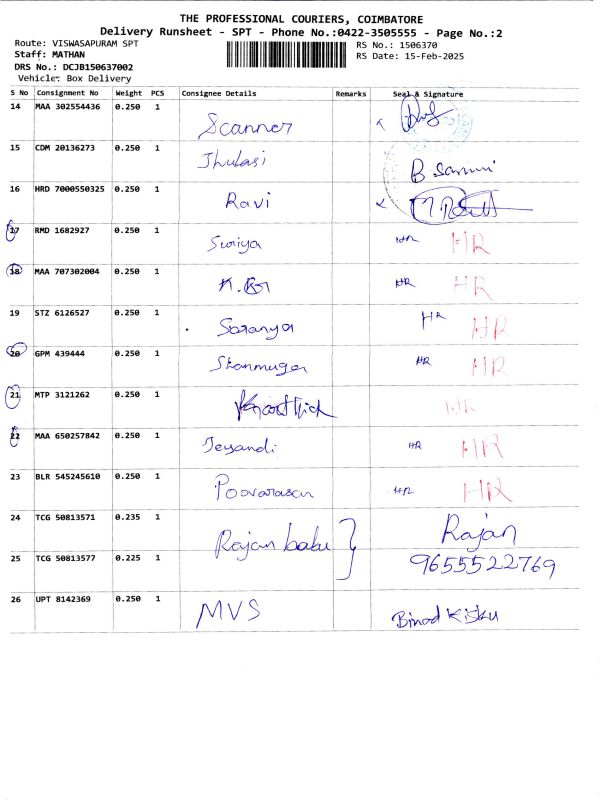 THE PROFESSIONAL COURIERS, COIMBATORE
Delivery Runsheet - SPT - Phone No.:0422-3505555 - Page No.:2
Route: VISWASAPURAM SPT
Staff: MATHAN
DRS No.: DCJB150637002
Vehicle: Box Delivery
RS No.: 1506370
RS Date: 15-Feb-2025
S No Consignment No Weight PCS Consignee Details Remarks Seal & Signature
14 MAA 302554436 0.250 1 Scanner
15 CDM 20136273 0.250 1 Thulasi B Sammi
16 HRD 7000550325 0.250 1 Ravi
17 RMD 1682927 0.250 1 Suriya HR HR
18 MAA 707302004 0.250 1 HR HR
19 STZ 6126527 0.250 1 Saranya HR HR
20 GPM 439444 0.250 1 Shanmuga HR HR
21 MTP 3121262 0.250 1 Karthick HR
22 MAA 650257842 0.250 1 Jeyandi HR HR
23 BLR 545245610 0.250 1 Poovarasan HR HR
24 TCG 50813571 0.235 1 Rajan babu } Rajan
25 TCG 50813577 0.225 1 9655522769
26 UPT 8142369 0.250 1 MVS Binod Kisku